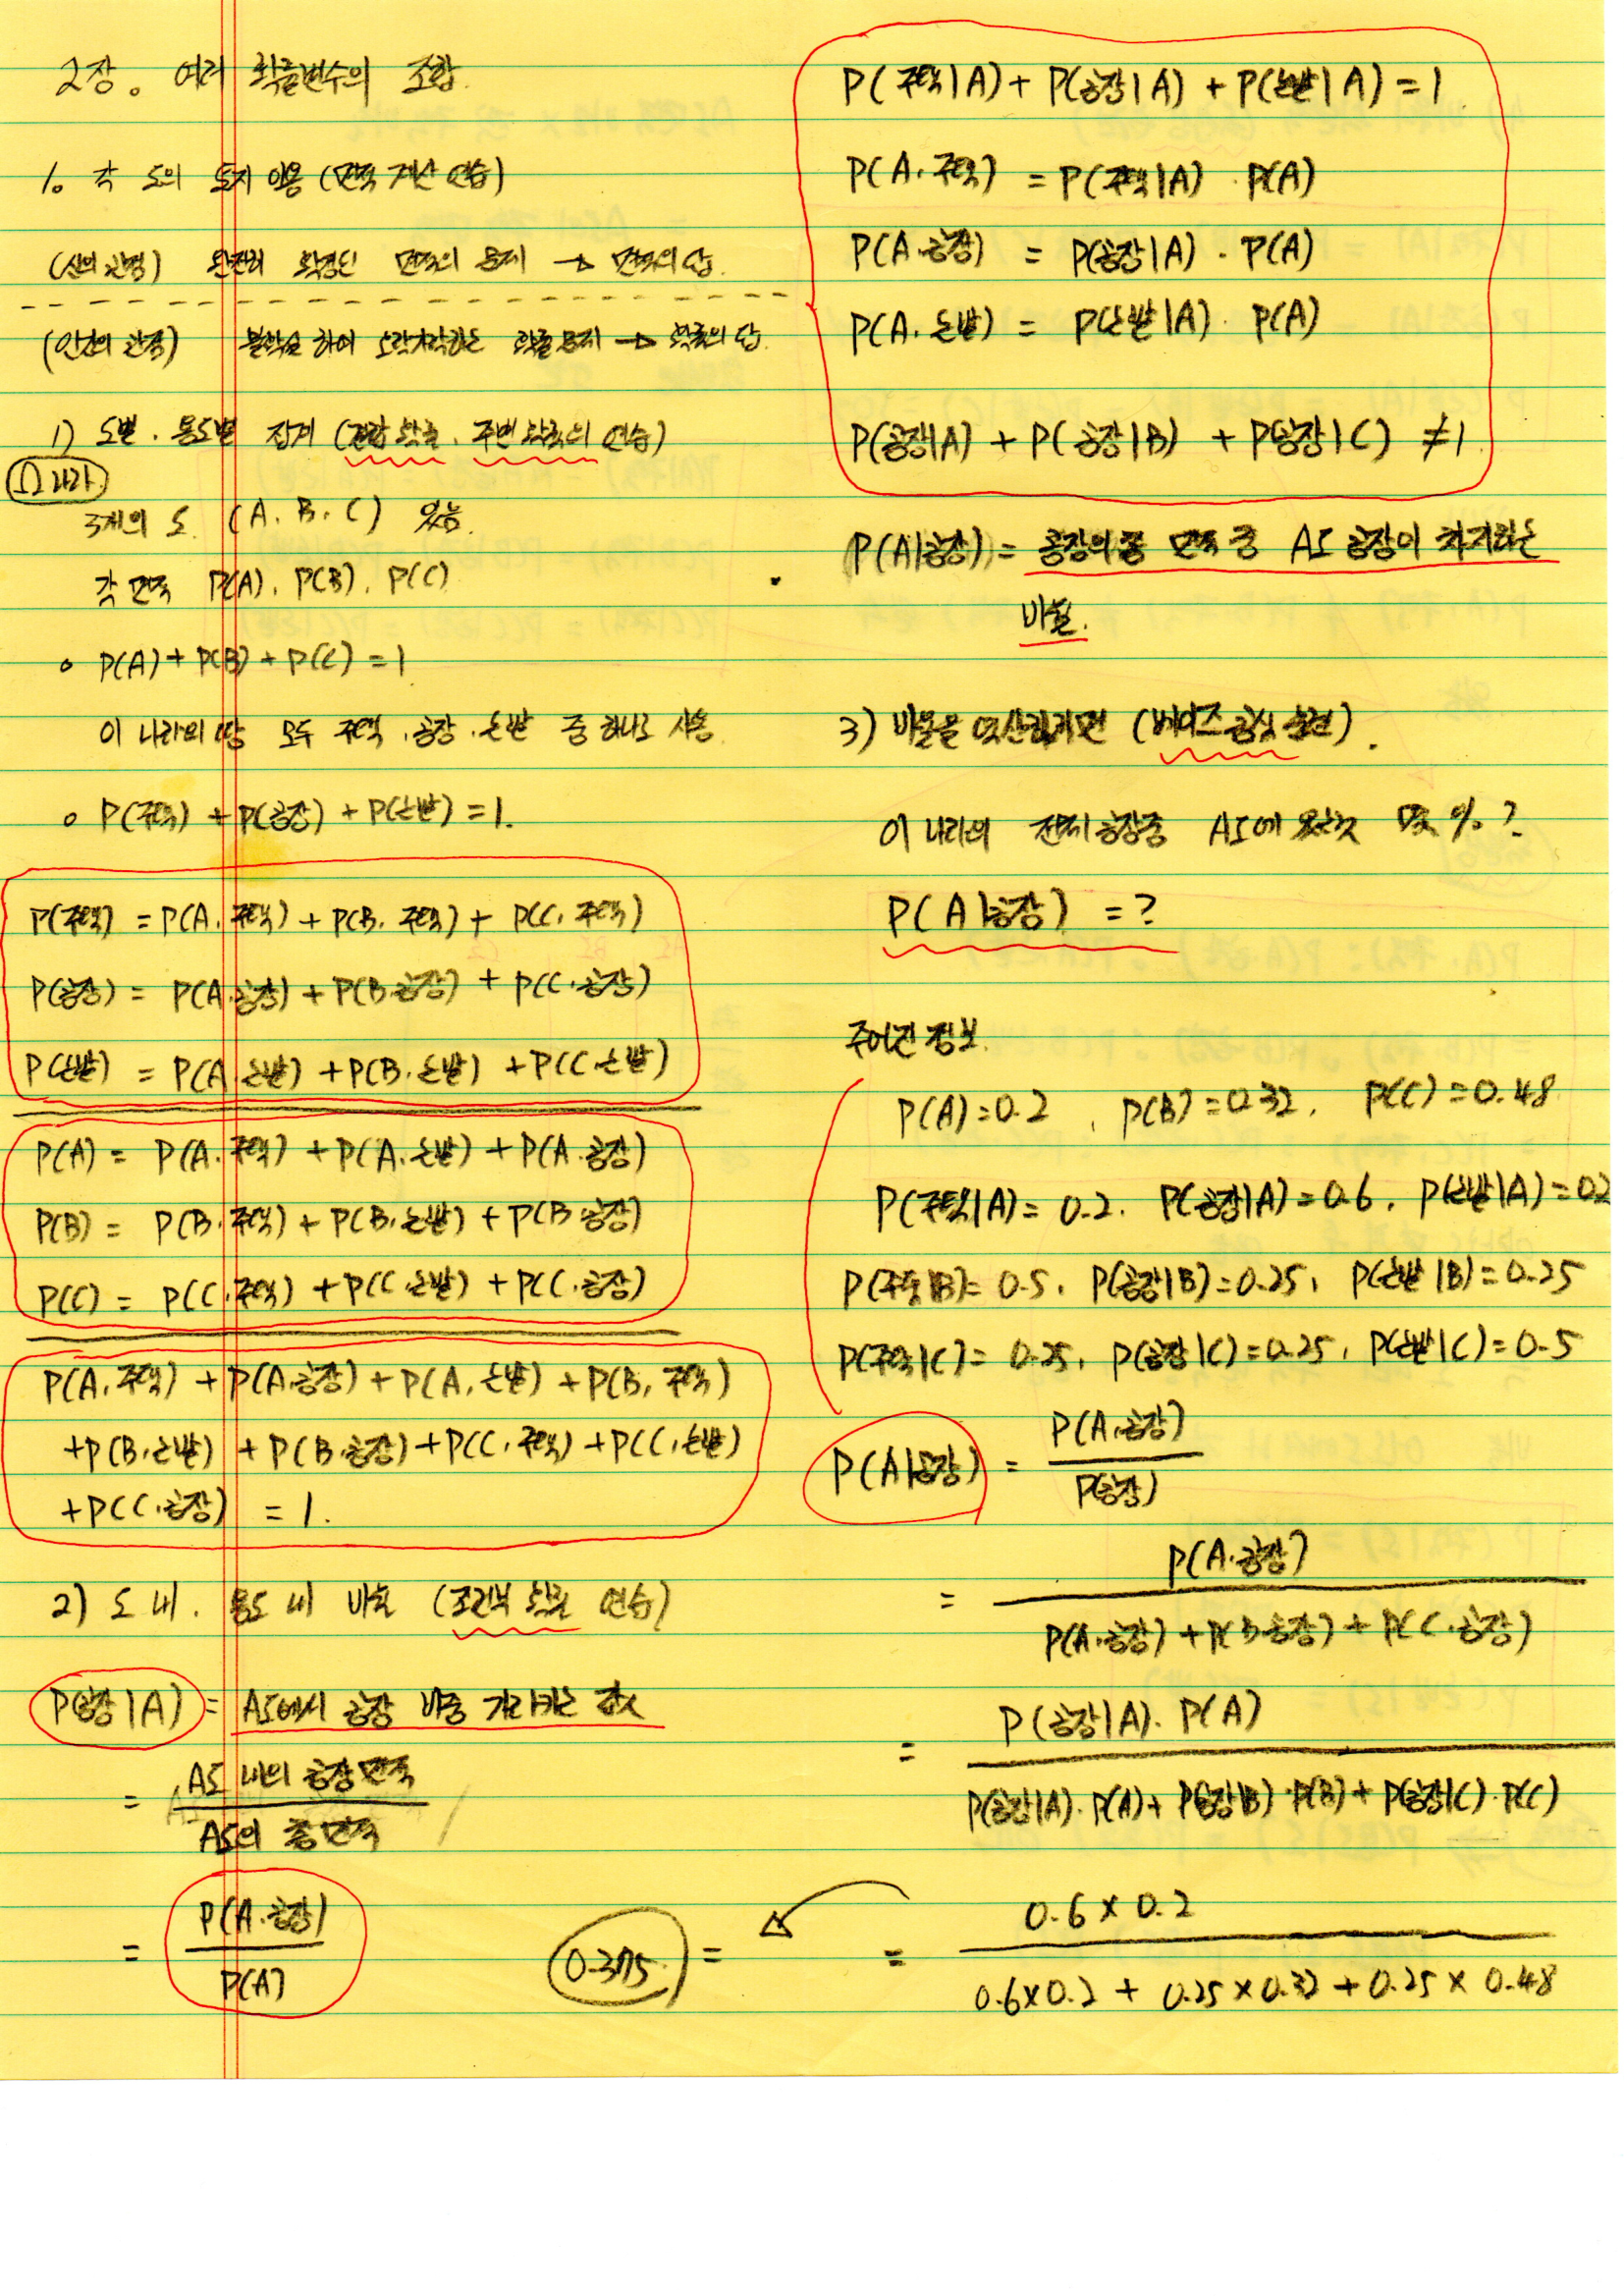 2장. 여러 확률변수의 조합.
1. 각 도의 토지 이용 (면적 계산 연습)
(신의 관점) 완전히 확정된 면적의 문제 → 면적의 답.
(인간의 관점) 불확실 하여 오락가락하는 확률 문제 → 확률의 답.
1) 도별. 용도별 집계 (결합 확률. 주변 확률의 연습)
Ω 나라
3개의 도. (A. B. C) 있음.
각 면적 P(A). P(B). P(C)
o P(A) + P(B) + P(C) = 1
이 나라의 땅 모두 주택. 공장. 논밭 중 하나로 사용.
o P(주택) + P(공장) + P(논밭) = 1.
P(주택) = P(A. 주택) + P(B. 주택) + P(C. 주택)
P(공장) = P(A.공장) + P(B.공장) + P(C.공장)
P(논밭) = P(A.논밭) + P(B.논밭) + P(C.논밭)
P(A) = P(A.주택) + P(A.논밭) + P(A.공장)
P(B) = P(B.주택) + P(B.논밭) + P(B.공장)
P(C) = P(C.주택) + P(C.논밭) + P(C.공장)
P(A.주택) + P(A.공장) + P(A.논밭) + P(B.주택)
+P(B.논밭) + P(B.공장) + P(C.주택) + P(C.논밭)
+P(C.공장) = 1.
2) 도 내. 용도 내 비율 (조건부 확률 연습)
P(공장|A) = A도에서 공장 비중 가리키는 값
= A도 내의 공장면적
A도의 총면적
= P(A.공장)
P(A)
P(주택|A) + P(공장|A) + P(논밭|A) = 1
P(A.주택) = P(주택|A) · P(A)
P(A.공장) = P(공장|A) · P(A)
P(A.논밭) = P(논밭|A) · P(A)
P(공장|A) + P(공장|B) + P(공장|C) ≠ 1.
P(A|공장) = 공장의 총 면적 중 A도 공장이 차지하는
비율.
3) 비율을 역산하려면 (베이즈 공식 출현).
이 나라의 전체 공장중 A도에 있는것 몇 %?
P(A|공장) = ?
주어진 정보.
P(A)=0.2 , P(B)=0.32, P(C)=0.48
P(주택|A)= 0.2. P(공장|A)=0.6, P(논밭|A)=0.2
P(주택|B)= 0.5, P(공장|B)=0.25, P(논밭|B)=0.25
P(주택|C)= 0.25, P(공장|C)=0.25, P(논밭|C)=0.5
P(A|공장) = P(A.공장)
P(공장)
= P(A.공장)
P(A.공장) + P(B.공장) + P(C.공장)
= P(공장|A). P(A)
P(공장|A). P(A) + P(공장|B). P(B) + P(공장|C). P(C)
= 0.6 × 0.2
0.6×0.2 + 0.25×0.32 + 0.25×0.48
0.375 =